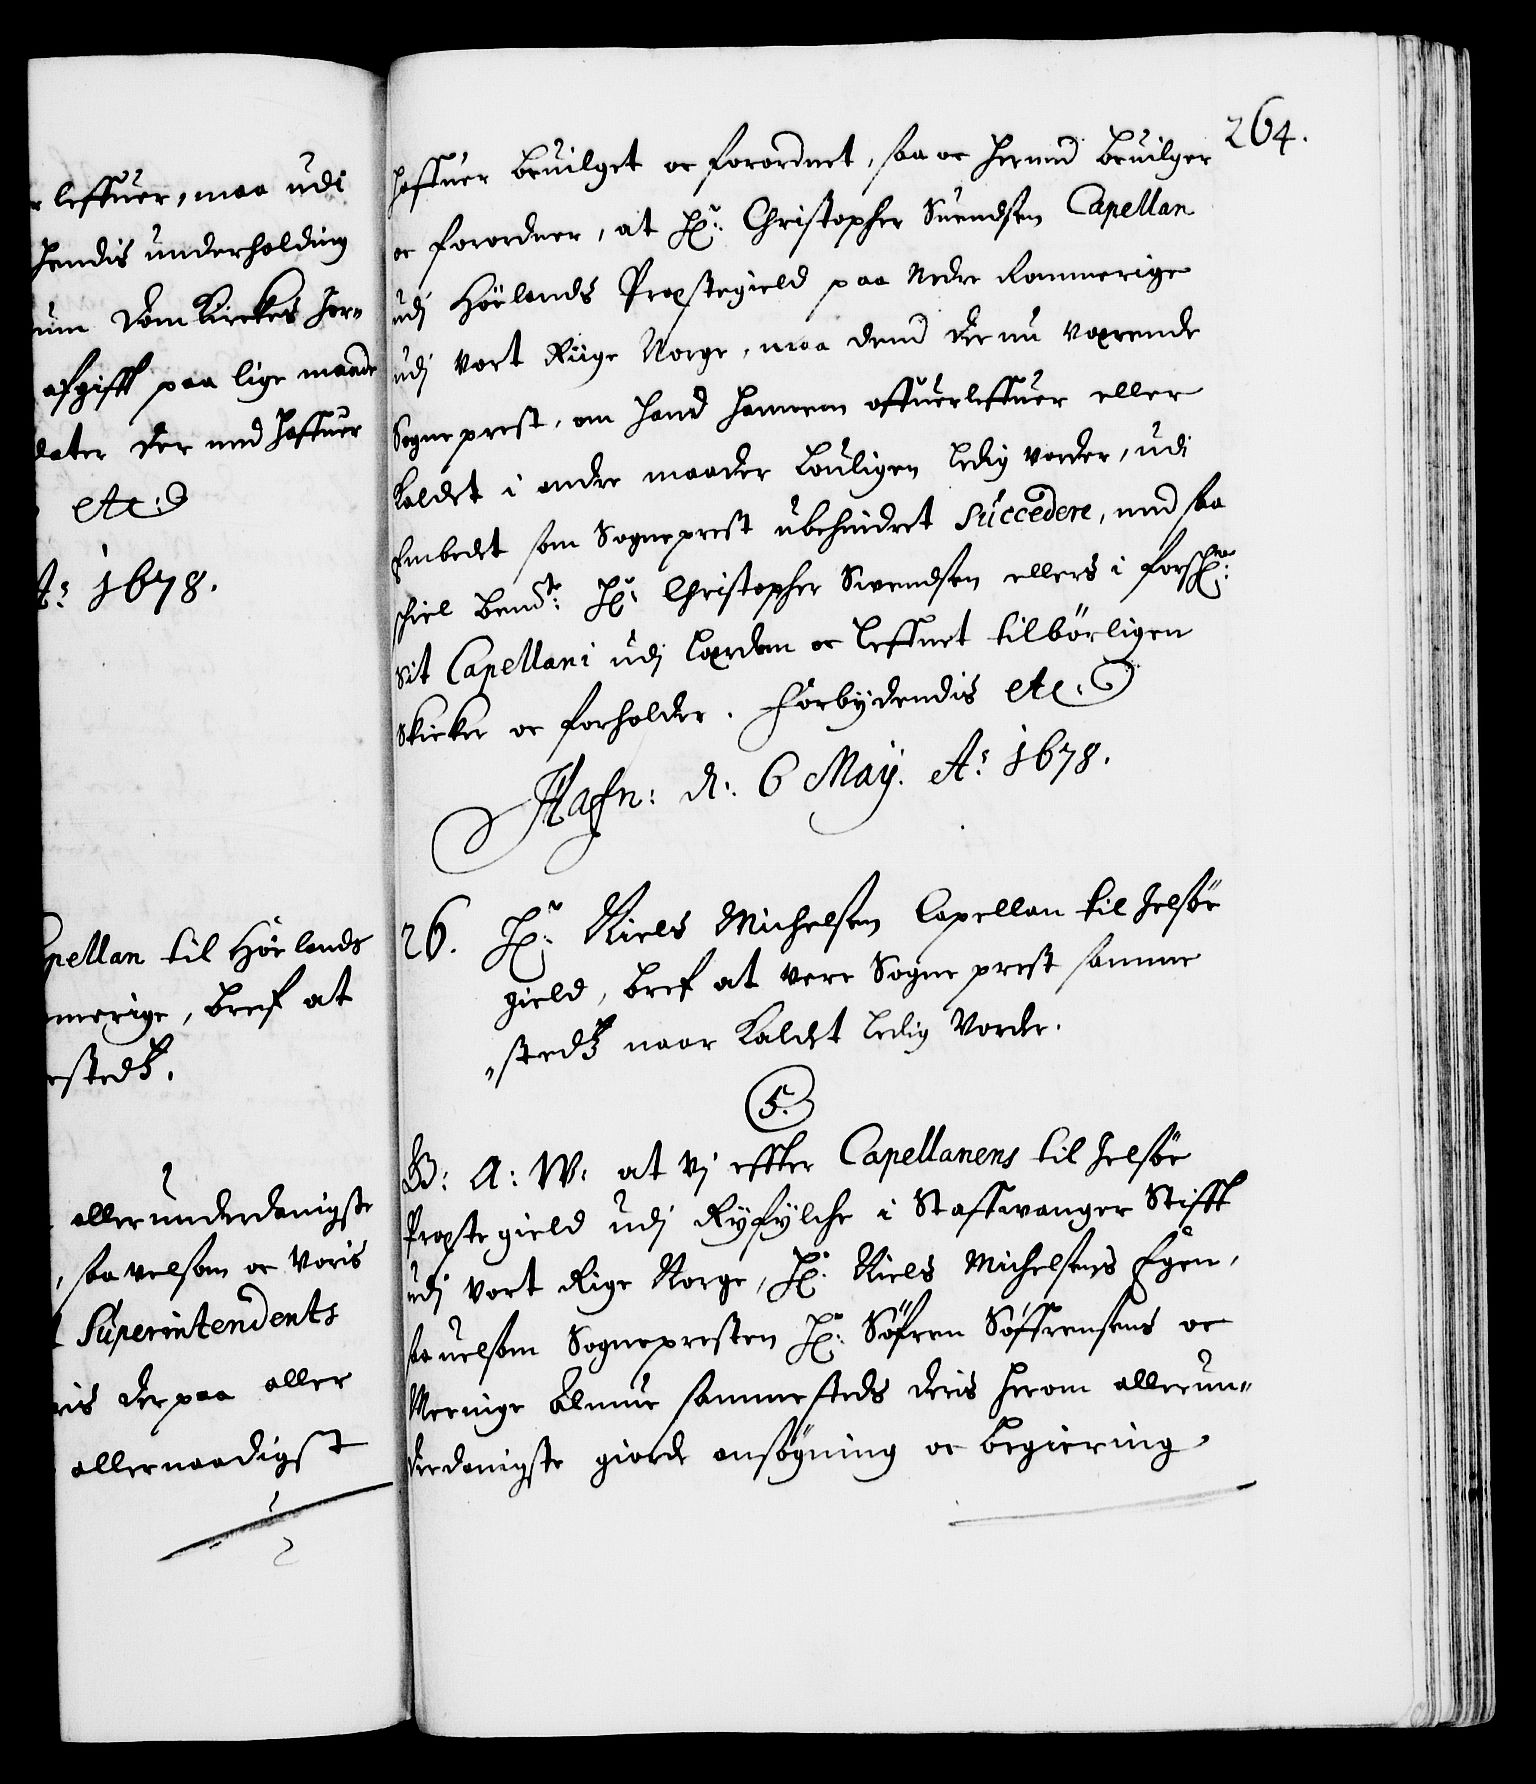 r leffuer, maa udi
hendis underholding
um Dom Kirckes Jor-
afgifft paa lige maade
dater der med haffuer
etc:
A: 1678.
pellan til Höelands
merige, bref at
sted.
allerunderdanigste
, saavelsom oc Voris
Superintendents
ris der paa aller
allernaadigst
264.
haffuer beuilget oc forordnet, saa oc hermed beuilger
oc forordner, at Hr: Christopher Suendsen Capellan
udj Höelands Præstegield paa Nedre Rommerige
udj Vort Riige Norge, maa dend der nu værende
Sogneprest, om hand hannem offuerleffuer eller
Kaldet i andre maader louligen ledig vorder, udi
Embedet som Sogneprest ubehindret Succedere, med saa
skiel bemte: Hr: Christopher Swendsen ellers i forschne:
sit Capellani udj Lærdom oc Leffnet tilbörligen
skicker oc forholder. Forbydendis etc:
Hafn: d: 6 Maÿ. A: 1678.
26. Hr: Niels Michelsen Capellan til Jelsöe
gield, bref at vere Sogne prest samme
"sted naar Kaldet ledig Vorder.
5.
G: A: W: at Vj effter Capellanens til Jelsöe
Præstegield udj Ryfylche i Staffwanger Stifft
udj Vort Rige Norge, Hr: Niels Michelsens Egen,
saauelsom Sognepresten Hr: Söfren Söffrensens oc
Meenige Almue sammesteds deris herom allerun-
derdanigste giorde ansögning oc begiering